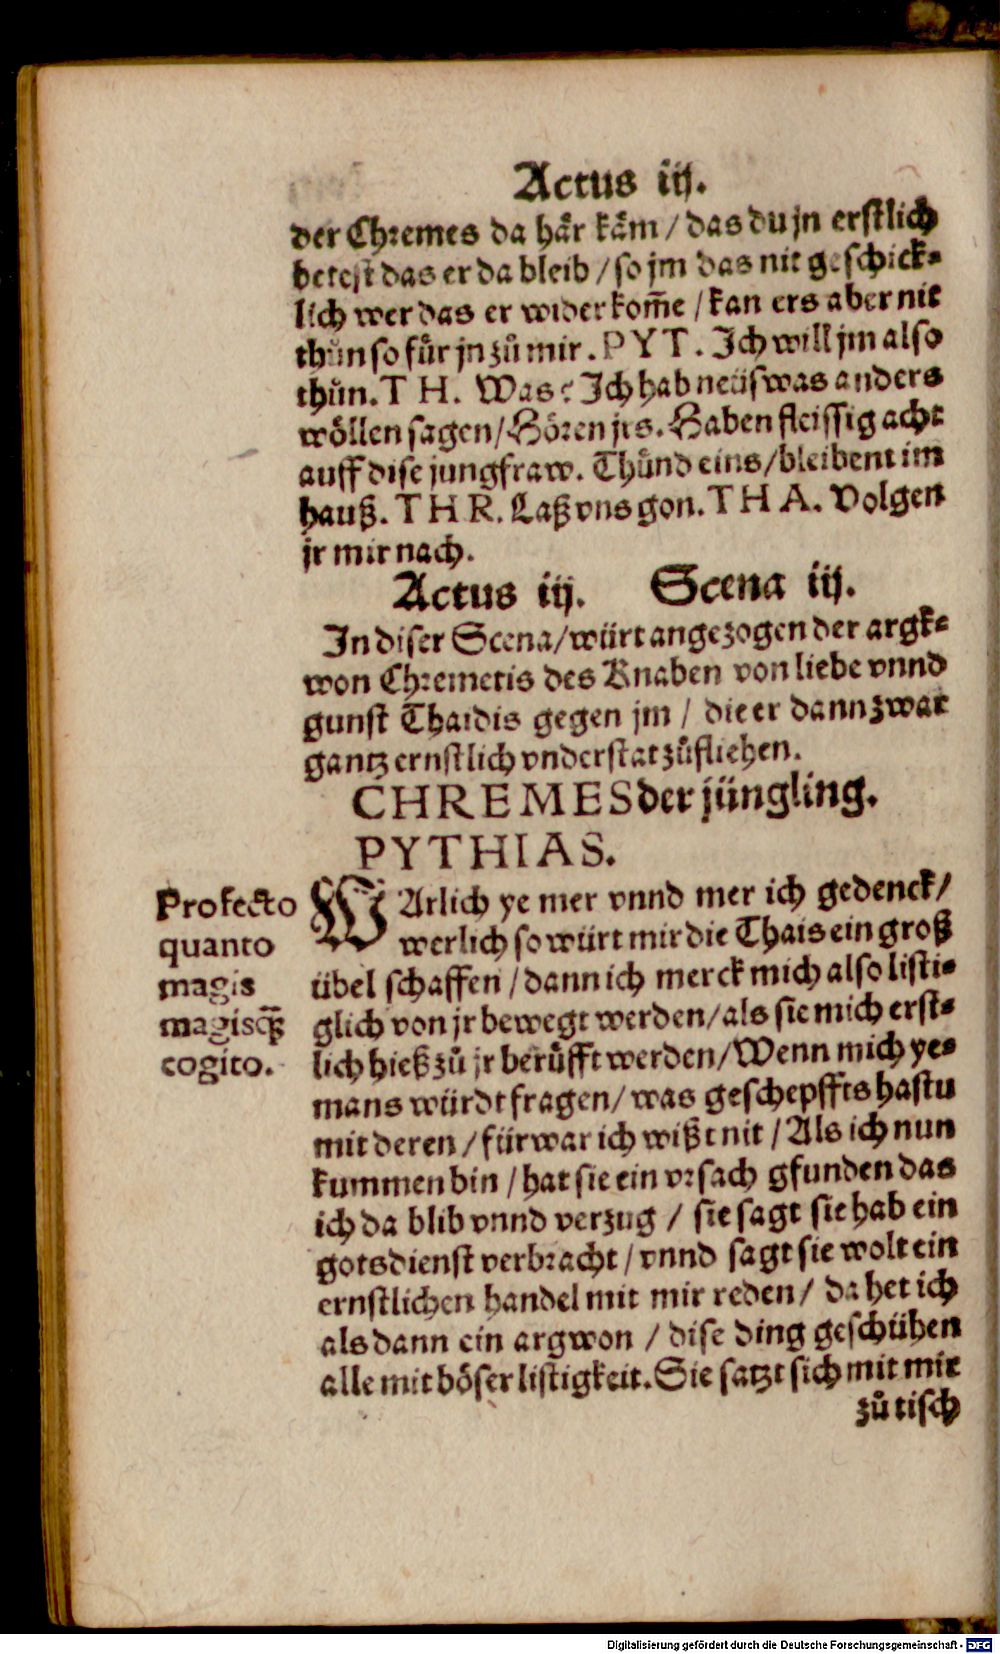 Actus iij.
der Chremes da här käm / das du jn erstlich
betest das er da bleib / so jm das nit geschick⸗
lich wer das er wider kom̃e / kan ers aber nit
thůn so fůr jn zů mir. PYT. Ich will jm also
thůn. TH. Was? Ich hab neüs was anders
wöllen sagen / Hören jrs. Haben fleissig acht
auff dise jungfraw. Thůnd eins / bleibent im
hauß. THR. Laß vns gon. THA. Volgen
jr mir nach.
Actus iij. Scena iij.
In diser Scena / würt angezogen der argk⸗
won Chremetis des Knaben von liebe vnnd
gunst Thaidis gegen jm / die er dann zwar
gantz ernstlich vnderstat zůfliehen.
CHREMES der jüngling.
PYTHIAS.
WArlich ye mer vnnd mer ich gedenck /
werlich so würt mir die Thais ein groß
übel schaffen / dann ich merck mich also listi⸗
glich von jr bewegt werden / als sie mich erst⸗
lich hieß zů jr berůfft werden / Wenn mich ye⸗
mans würdt fragen / was geschepffts hastu
mit deren / fürwar ich wißt nit / Als ich nun
kummen bin / hat sie ein vrsach gfunden das
ich da blib vnnd verzug / sie sagt sie hab ein
gotsdienst verbracht / vnnd sagt sie wolt ein
ernstlichen handel mit mir reden / da het ich
als dann ein argwon / dise ding geschühen
alle mit böser listigkeit. Sie satzt sich mit mir
zů tisch
Profecto
quanto
magis
magisq̃
cogito.
Digitalisierung gefördert durch die Deutsche Forschungsgemeinschaft - DFG